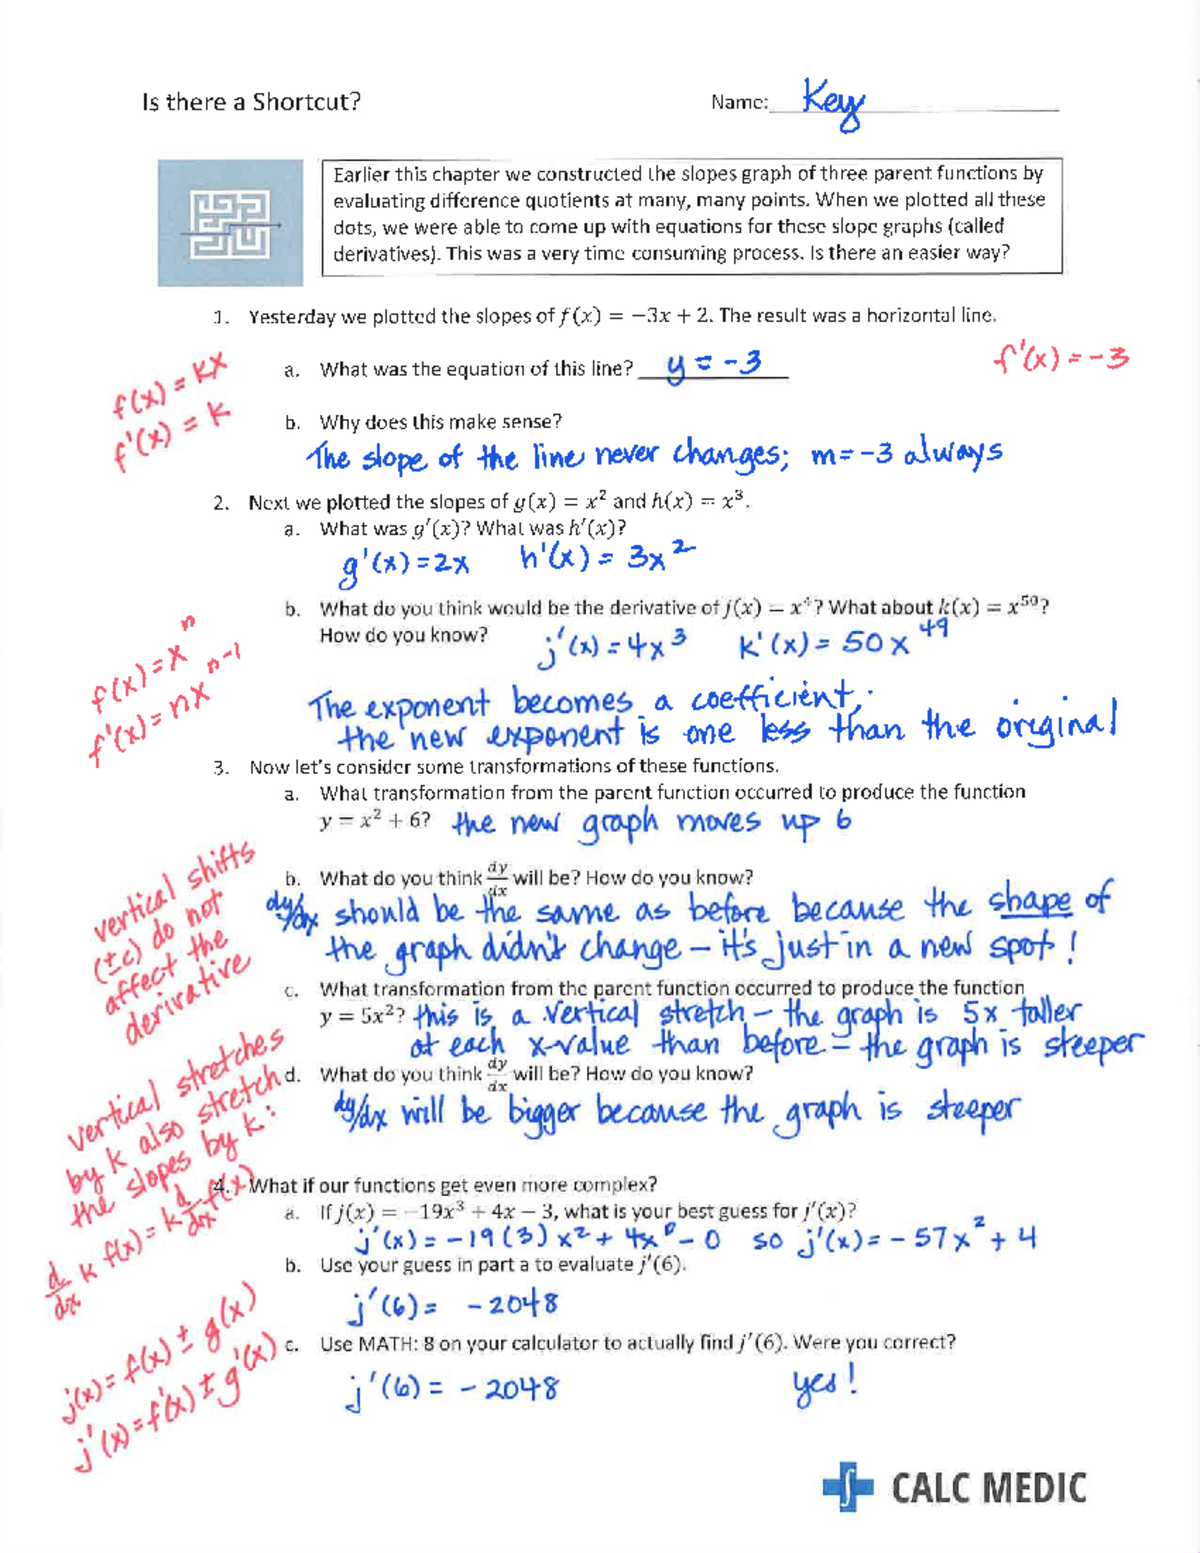 Is there a Shortcut?
Name: Key
Earlier this chapter we constructed the slopes graph of three parent functions by
evaluating difference quotients at many, many points. When we plotted all these
dots, we were able to come up with equations for these slope graphs (called
derivatives). This was a very time consuming process. Is there an easier way?
1. Yesterday we plotted the slopes of f(x) = −3x + 2. The result was a horizontal line.
f(x) = kx
f'(x) = k
a. What was the equation of this line? y = -3
f'(x) = -3
b. Why does this make sense?
The slope of the line never changes; m = -3 always
2. Next we plotted the slopes of g(x) = x² and h(x) = x³.
a. What was g′(x)? What was h′(x)?
g'(x) = 2x h'(x) = 3x²
b. What do you think would be the derivative of j(x) = x⁴? What about k(x) = x⁵⁰?
How do you know?
j'(x) = 4x³ k'(x) = 50x⁴⁹
f(x) = xⁿ
f'(x) = nxⁿ⁻¹
The exponent becomes a coefficient;
the new exponent is one less than the original
3. Now let's consider some transformations of these functions.
a. What transformation from the parent function occurred to produce the function
y = x² + 6? the new graph moves up 6
vertical shifts
(±c) do not
affect the
derivative
b. What do you think dy/dx will be? How do you know?
dy/dx should be the same as before because the shape of
the graph didn't change – it's just in a new spot!
c. What transformation from the parent function occurred to produce the function
y = 5x²? this is a vertical stretch – the graph is 5x taller
at each x-value than before – the graph is steeper
vertical stretches
by k also stretch
the slopes by k:
d/dx k f(x) = k d/dx f(x)
d. What do you think dy/dx will be? How do you know?
dy/dx will be bigger because the graph is steeper
4. What if our functions get even more complex?
a. If j(x) = −19x³ + 4x − 3, what is your best guess for j′(x)?
j'(x) = -19(3)x² + 4x⁰ - 0 so j'(x) = -57x² + 4
b. Use your guess in part a to evaluate j′(6).
j'(6) = -2048
j(x) = f(x) ± g(x)
j'(x) = f'(x) ± g'(x)
c. Use MATH: 8 on your calculator to actually find j′(6). Were you correct?
j'(6) = -2048 yes!
CALC MEDIC